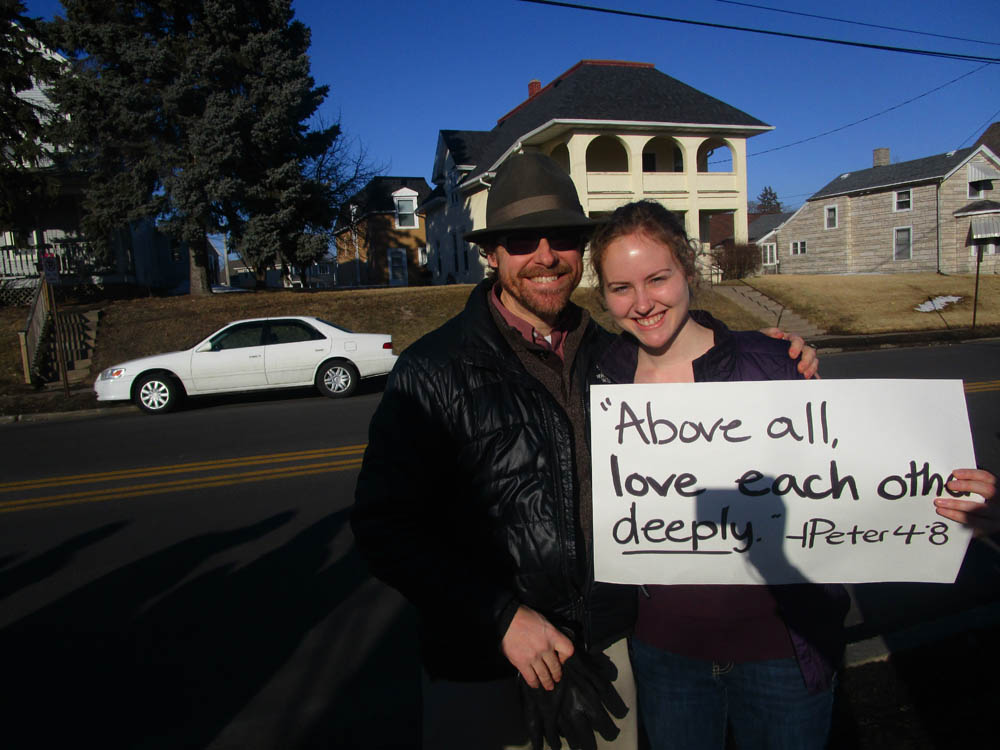 "Above all,
love each other
deeply." -1Peter 4:8